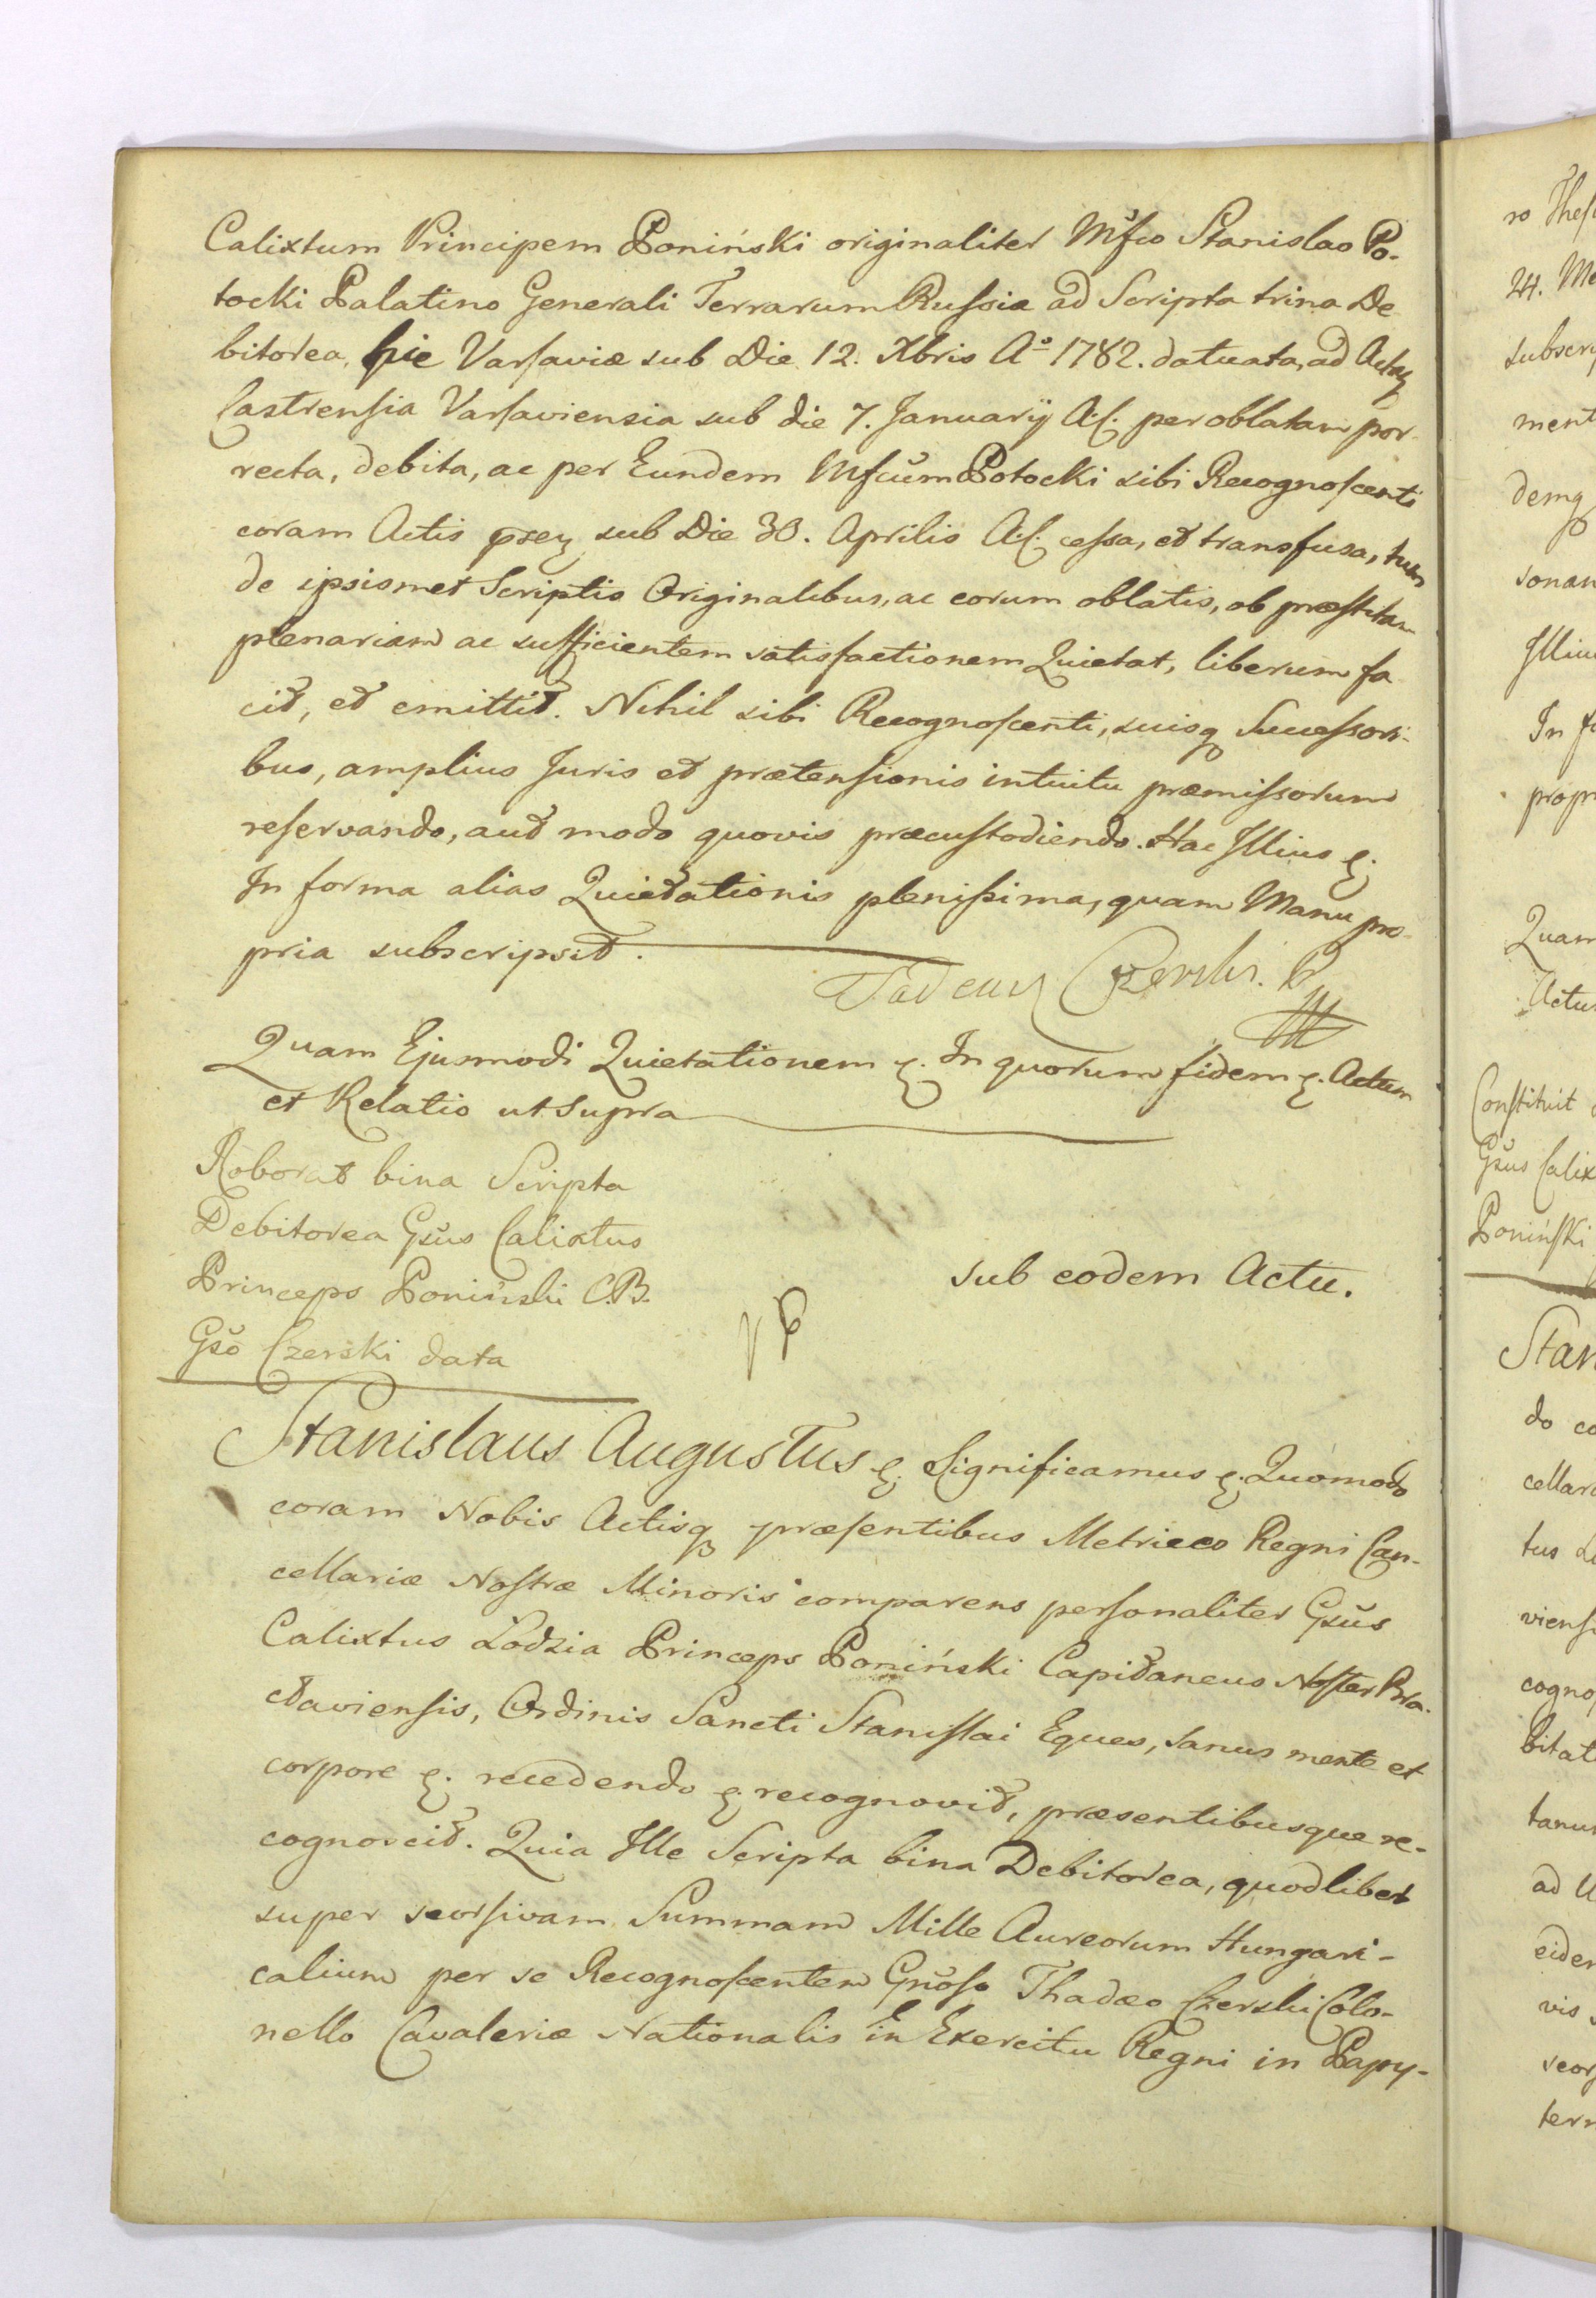 Calixtum Principem Poniński originaliter Mfco Stanislao Po-
tocki Palatino Generali Terrarum Russiæ ad Scripta trina De
bitorea, hic Varsaviæ sub Die 12. Xbris Aº 1782. datuata, ad Acta
Castrensia Varsaviensia sub die 7. Januarij A.C. per oblatam por
recta, debita, ac per Eundem Mfcum Potocki sibi Recognoscenti
coram Actis sub Die 30. Aprilis A.C. cessa, et transfusa, tum
de ipsismet Scriptis Originalibus, ac eorum oblatis, ob præstitam
plenariam ac sufficientem satisfactionem Quietat, liberum fa
cit, et emittit. Nihil sibi Recognoscenti, suisq Successori-
bus, amplius Juris et prætensionis intuitu præmissorum
reservando, aut modo quovis præcustodiendo. Hac Illius &.
In forma alias Quietationis plenissima, quam Manu pro-
pria subscripsit.
Tadeusz Czerski. P
Quam Ejusmodi Quietationem &. In quorum fidem &. Actum
et Relatio ut supra
Roborat bina Scripta
Debitorea Gsus Calixtus
Princeps Poniński C.B.
Gso Czerski data
sub eodem Actu.
Stanislaus Augustus &. Significamus &. Quomodo
coram Nobis Actisq præsentibus Metrices Regni Can-
cellariæ Nostræ Minoris comparens personaliter Gsus
Calixtus Łodzia Princeps Poniński Capitaneus Noster Bra-
claviensis, Ordinis Sancti Stanislai Eques, sanus mente et
corpore &. recedendo &. recognovit, præsentibusque re-
cognoscit. Quia Ille Scripta bina Debitorea, quodlibet
super seorsivam Summam Mille Aureorum Hungari-
calium per se Recognoscentem Gnoso Thadæo Czerski Colo-
nello Cavaleriæ Nationalis in Exercitu Regni in Papy-
ro Thes
24. Me
subscri
ment
demq
sonan
Illius
In fo
propr
Quam
Actu
Constituit
Gsus Calix
Poniński
Stan
do co
cellari
tus
viensi
cogno
bitat
tanu
ad
eidem
vis
seor
ter